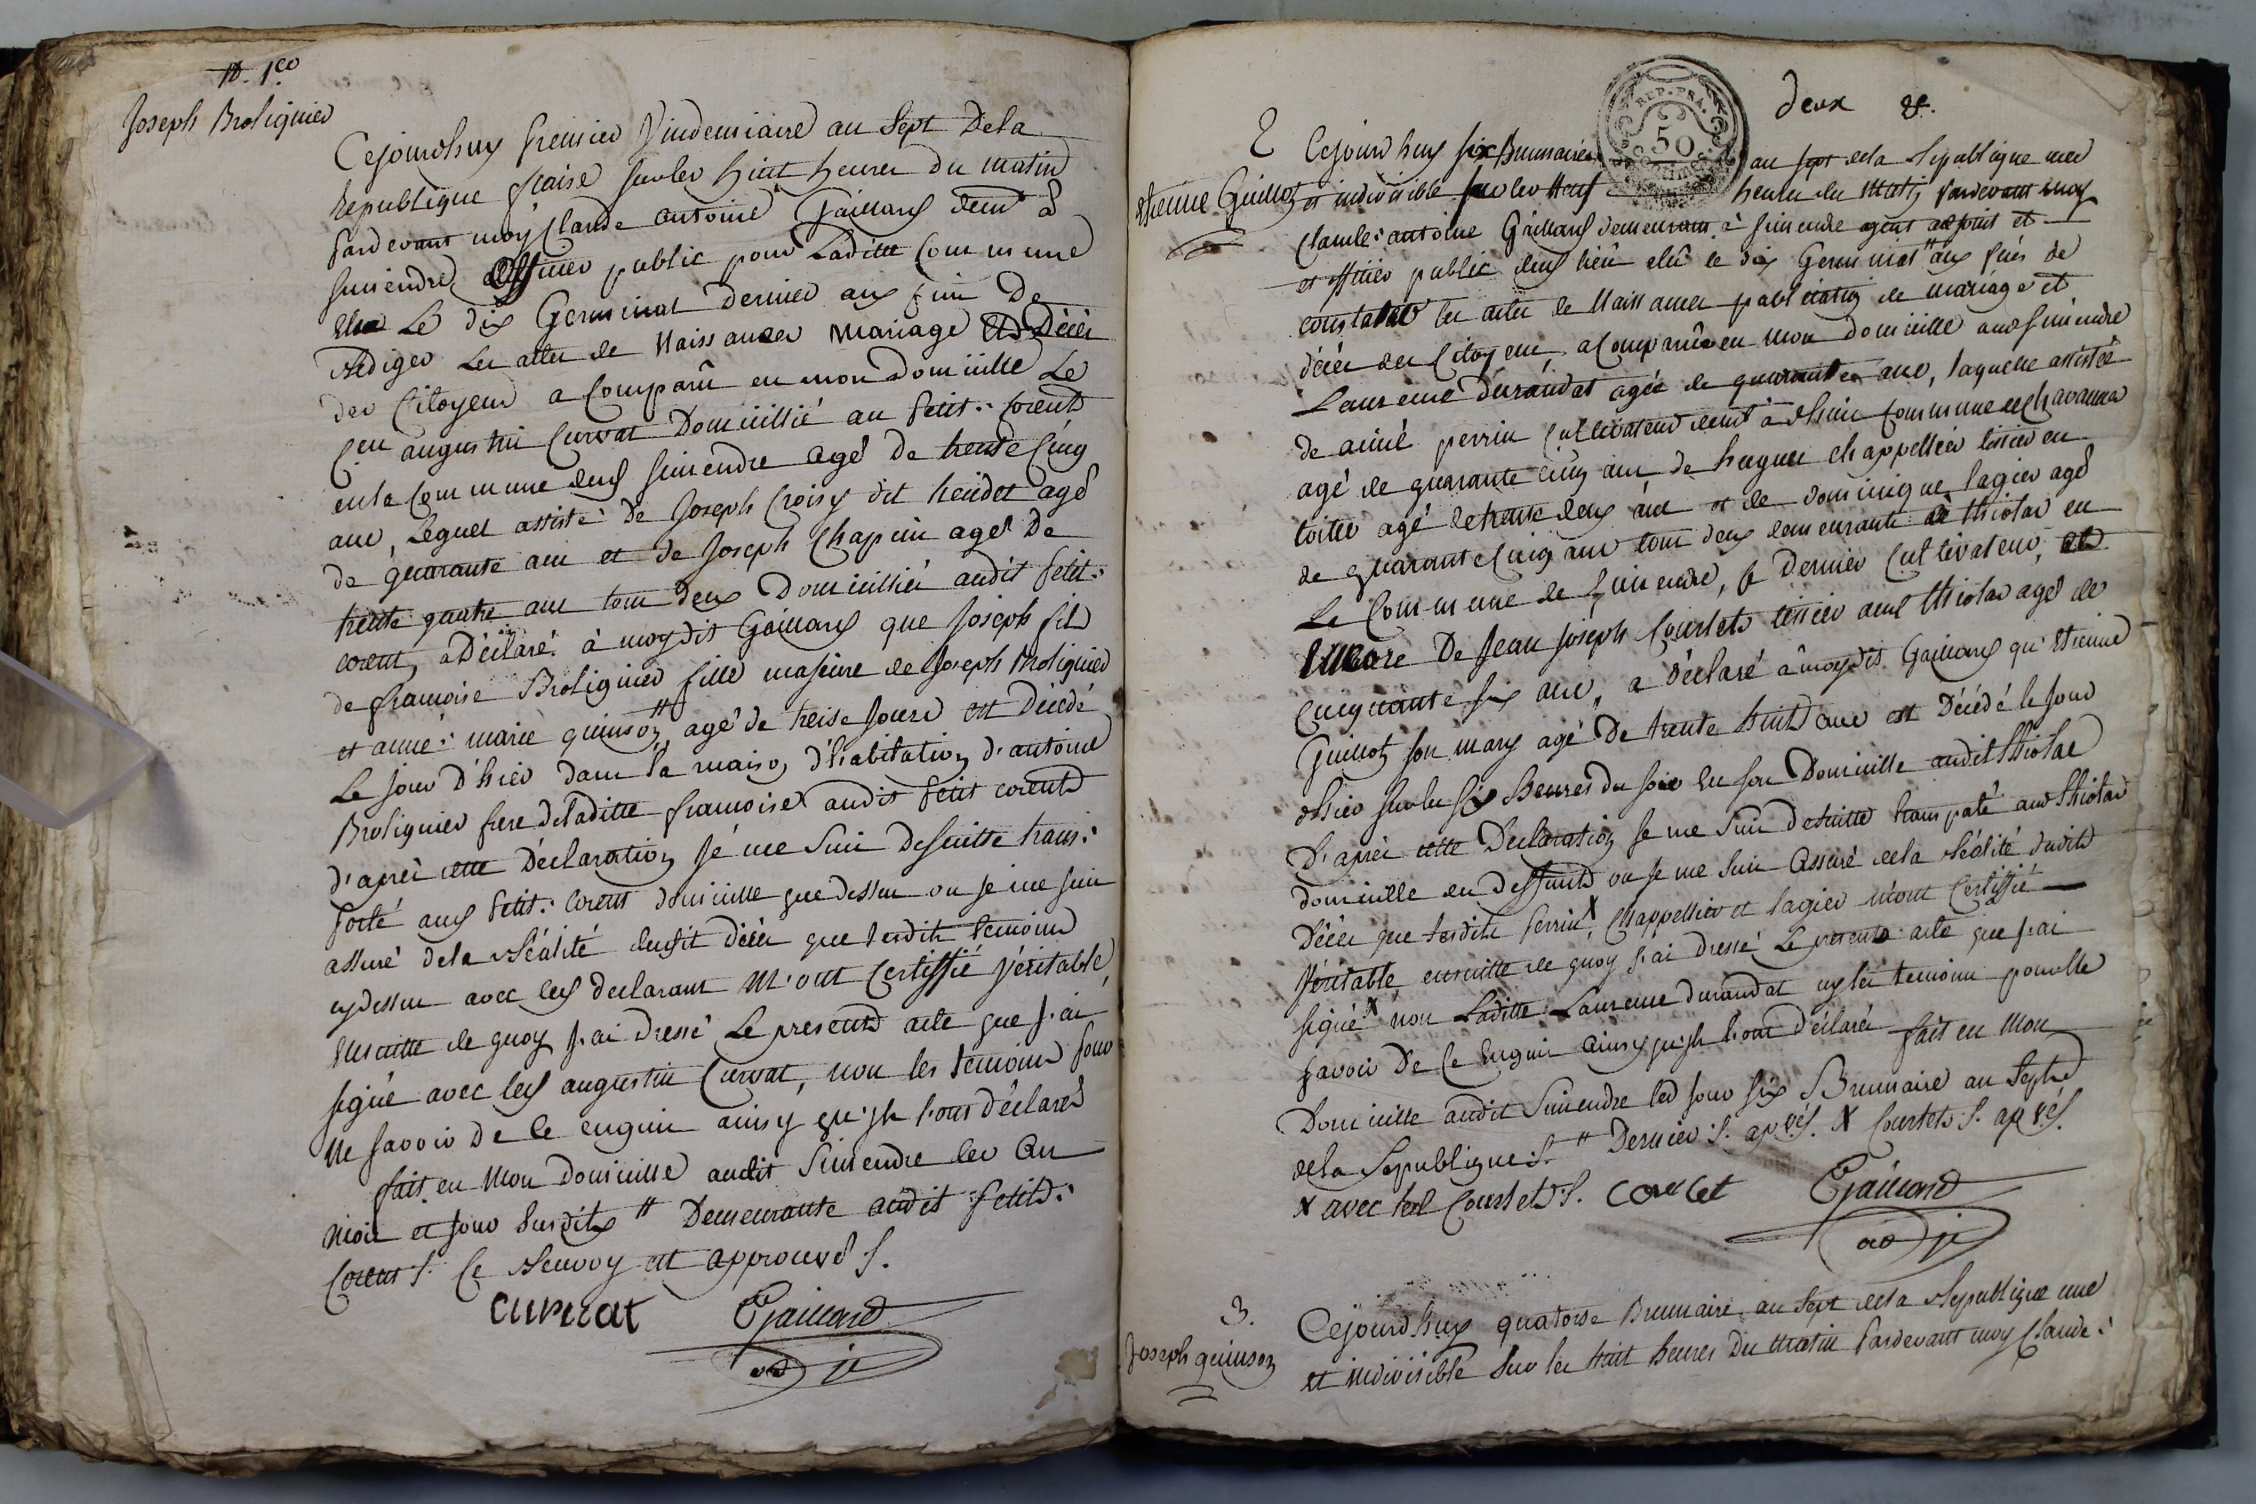 N. 1.er
Joseph Broliquier
Cejourdhuy premier Vindemiaire an Sept Dela
Republique fraise sur les huit heures du matin
pardevant moy Claude antoine Gaillard demt a
simendre officier public pour Laditte Commune
Elu Le dix Germinal dernier aux fins De
Rediger Les actes de Naissances Mariage Et Décès
des Citoyens a Comparû en mon domicille Le
Cen augustin Curvat Domicillié au petit: Corent
en la Commune dud simendre agé De trente Cinq
ans, Lequel assisté de Joseph Croisy dit agé
de quarante ans et de Joseph Chapuin agé De
trente quatre ans tous deux Domicilliés audit petit:
corent, a Déclaré à moydit Gaillard que Joseph fils
de francoise Broliquier fille majeure de Joseph Broliquier
et anne: marie quinson " agé de treise Jours est Décédé
Le Jour D'hier dans la maison d'habitation d'antoine
Broliquier frere deladitte francoise audit petit corent
d'après cette Déclaration Je me suis desuitte trans:
porté aud petit: corent domicille que dessus ou je me suis
assuré dela Réalité dudit décès que lesdits temoins
cydessus avec led declarant M'ont Certiffié Véritable,
Ensuitte de quoy J'ai Dressé Le present acte que J'ai
signé avec led augustin Curvat, non les temoins pour
Ne savoir De Ce enquis ainsy qu'ils l'ont déclarés
fait en Mon domicille audit Simendre les an
mois et Jour susdits " Demeurante audit petit:
Corent S. Ce Renvoy est approuvé S.
curvat Gaillard
deux
REP. FRA.
50
2
Etienne Guillot
Cejourdhuy six Brumaire an sept dela Republique une
et indivisible sur les Neuf heures du Matin pardevant moy
Claude: antoine Gaillard demeurant à simendre agent adjoint et
et officier public dud lieu elû le dix Germinal " aux fins de
constater les actes de Naissances publication de mariage et
décès des Citoyens, a Comparûe en mon domicille aud simendre
Laurence durandat agée de quarante ans, laquelle assistée
de aimé perrin Cultivateur demt à commune de Chavanne
agé de quarante cinq ans, de hugues chappellier tissier en
toille agé detrente deux ans et de dominique lagier agé
de quarante Cinq ans tous deux demeurants à thiolas en
La Commune de Simendre, ce Dernier Cultivateur, et
Encore De Jean Joseph Courlet tissier aud thiolas agé de
Cinquante six ans, a déclaré à moydit Gaillard qu'Etienne
Guillot son mary agé De trente huit ans est Décédé le Jour
d'hier sur les six heures du soir En son Domicille audit thiolas
D'après cette Déclaration Je me suis desuitte transporté aud thiolas
domicille du deffunt ou Je me suis Assuré dela Réalité dudit
Décès que lesdits perrin, X Chappellier et lagier m'ont Certiffié
Véritable, ensuitte de quoy J'ai dressé Le present acte que J'ai
signé X non Laditte Laurence durandat ny les temoins pour Ne
savoir De Ce Enquis ainsy qu'ils l'ont déclarés fait en Mon
Domicille audit Simendre led Jour six Brumaire an sept
dela Republique S. " Dernier S. apvés. X Courlet S. apvés.
X avec led Courlet S. Courlet Gaillard
3.
Joseph quinson
Cejourdhuy quatorse Brumaire an sept dela Republique une
et indivisible sur les huit heures Du matin pardevant moy Claude: